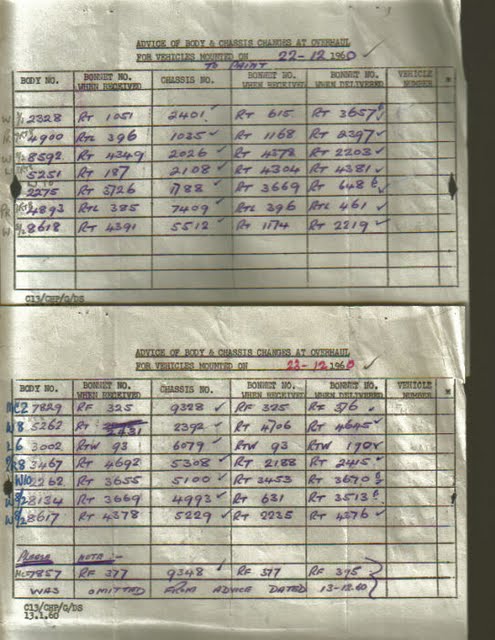 ADVICE OF BODY & CHASSIS CHANGES AT OVERHAUL
FOR VEHICLES MOUNTED ON 22-12 1960 ✓
TO PAINT
BODY NO. BONNET NO. WHEN RECEIVED CHASSIS NO. BONNET NO. WHEN RECEIVED BONNET NO. WHEN DELIVERED VEHICLE NUMBER *
W 2328 RT 1051 2401 ✓ RT 615 RT 3657 ✓
4900 RTL 396 1035 ✓ RT 1168 RT 2397 ✓
W 8592 RT 4349 2026 ✓ RT 4578 RT 2203 ✓
5251 RT 187 2108 ✓ RT 4304 RT 4381 ✓
2275 RT 3726 1788 ✓ RT 3669 RT 648 ✓
4893 RTL 385 7409 ✓ RTL 396 RTL 461 ✓
W 8618 RT 4391 5512 ✓ RT 1174 RT 2219 ✓
C13/CHP/G/DS
ADVICE OF BODY & CHASSIS CHANGES AT OVERHAUL
FOR VEHICLES MOUNTED ON 23-12 1960 ✓
BODY NO. BONNET NO. WHEN RECEIVED CHASSIS NO. BONNET NO. WHEN RECEIVED BONNET NO. WHEN DELIVERED VEHICLE NUMBER *
7829 RF 325 9328 ✓ RF 325 RF 376 ✓
W8 5262 RT 2431 2392 ✓ RT 4706 RT 4645 ✓
L6 3002 RTW 93 6079 ✓ RTW 93 RTW 170 ✓
3467 RT 4692 5308 ✓ RT 2188 RT 2415 ✓
W10 2262 RT 3655 5100 ✓ RT 3453 RT 3670 ✓
8134 RT 3669 4993 ✓ RT 631 RT 3513 ✓
8617 RT 4378 5229 ✓ RT 2235 RT 4276 ✓
PLEASE NOTE :-
7857 RF 377 9348 ✓ RF 377 RF 395
WAS OMITTED FROM ADVICE DATED 13-12.60
C13/CHP/G/DS
13.1.60